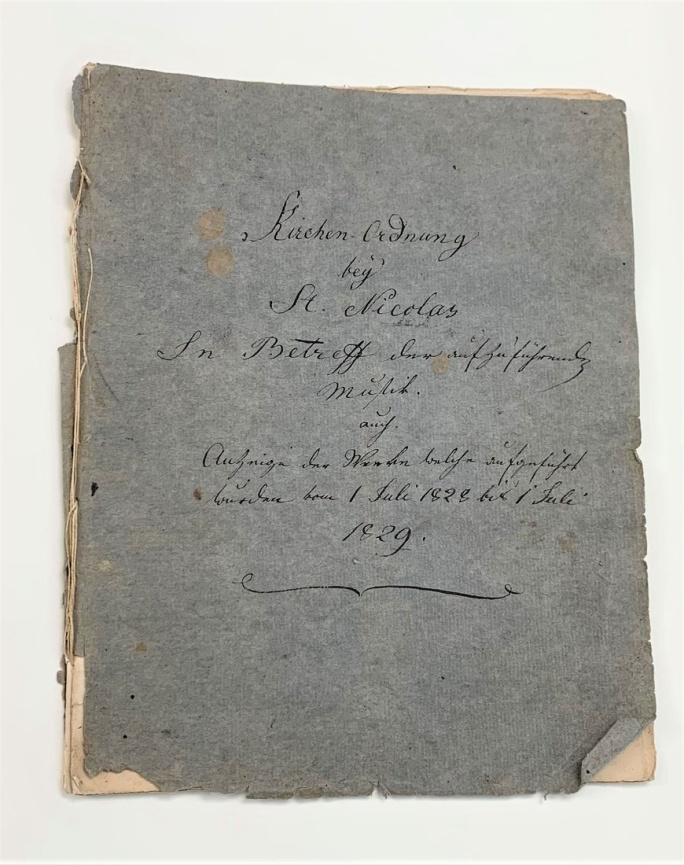 Kirchen-Ordnung
bey
St. Nicolas
In Betreff der aufzuführenden
Musik.
auch.
Anzeige der Werke welche aufgeführt
wurden vom 1 Juli 1828 bis 1 Juli
1829.